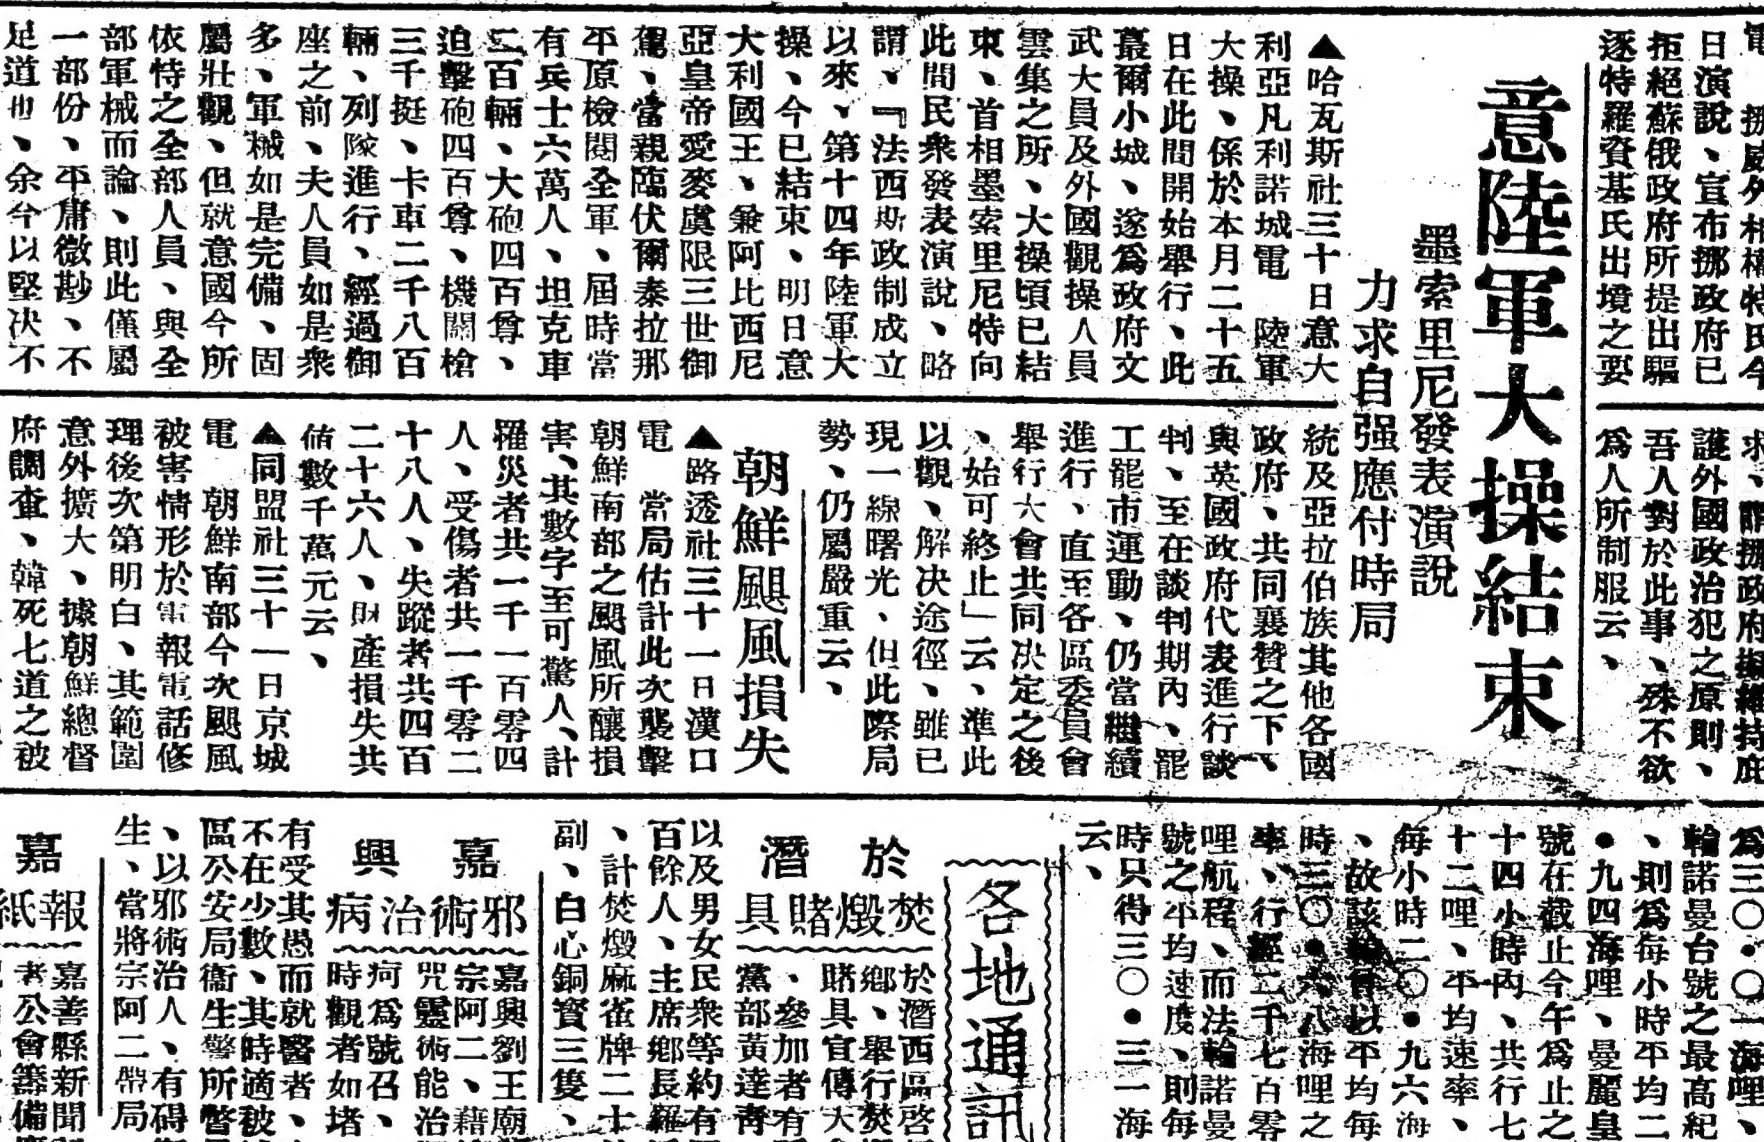 日演說、宣布挪政府已
拒絕蘇俄政府所提出驅
逐特羅資基氏出境之要
護外國政治犯之原則、
吾人對於此事、殊不欲
爲人所制服云、
意陸軍大操結束
墨索里尼發表演說
力求自强應付時局
▲哈瓦斯社三十日意大
利亞凡利諾城電　陸軍
大操、係於本月二十五
日在此間開始舉行、此
蕞爾小城、遂爲政府文
武大員及外國觀操人員
雲集之所、大操頃已結
束、首相墨索里尼特向
此間民衆發表演說、略
謂、『法西斯政制成立
以來、第十四年陸軍大
操、今已結束、明日意
大利國王、兼阿比西尼
亞皇帝愛麥虞限三世御
駕、當親臨伏爾泰拉那
平原檢閱全軍、屆時當
有兵士六萬人、坦克車
二百輛、大砲四百尊、
迫擊砲四百尊、機關槍
三千挺、卡車二千八百
輛、列隊進行、經過御
座之前、夫人員如是衆
多、軍械如是完備、固
屬壯觀、但就意國今所
依恃之全部人員、與全
部軍械而論、則此僅屬
一部份、平庸微尠、不
足道也、余今以堅决不
統及亞拉伯族其他各國
政府、共同襄贊之下、
與英國政府代表進行談
判、至在談判期內、罷
工罷市運動、仍當繼續
進行、直至各區委員會
舉行大會共同决定之後
、始可終止」云、準此
以觀、解决途徑、雖已
現一線曙光、但此際局
勢、仍屬嚴重云、
朝鮮颶風損失
▲路透社三十一日漢口
電　當局估計此次襲擊
朝鮮南部之颶風所釀損
害、其數字至可驚人、計
羅災者共一千一百零四
人、受傷者共一千零二
十八人、失蹤者共四百
二十六人、財產損失共
値數千萬元云、
▲同盟社三十一日京城
電　朝鮮南部今次颶風
被害情形於電報電話修
理後次第明白、其範圍
意外擴大、據朝鮮總督
府調查、韓死七道之被
爲三〇・〇一海哩、
輪諾曼台號之最高紀
、則爲每小時平均二
・九四海哩、曼麗皇
號在截止今午爲止之
十四小時內、共行七
十二哩、平均速率、
每小時二〇・九六海
、故該輪曾以平均每
時三〇・六八海哩之
率、行經二千七百零
哩航程、而法輪諾曼
號之平均速度、則每
時只得三〇・三一海
云、
各地通訊
於潛
焚燬賭具
於潛西區啓
鄉、舉行焚
賭具宣傳大
、參加者有
黨部黃達靑
以及男女民衆等約有
百餘人、主席鄉長羅
、計焚燬麻雀牌二十
副、白心銅寶三隻、
嘉興
邪術治病
嘉興劉王廟
宗阿二、藉
咒靈術能治
疴爲號召、
時觀者如堵
有受其愚而就醫者、
不在少數、其時適被
區公安局衞生警所瞥
、以邪術治人、有碍
生、當將宗阿二帶局
嘉
報紙
嘉善縣新聞
者公會籌備